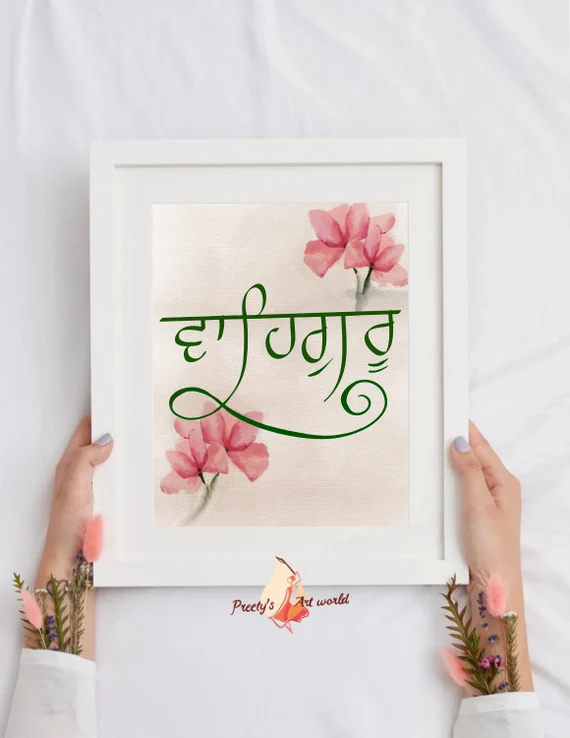 ਵਾਹਿਗੁਰੂ
Preety's Art world